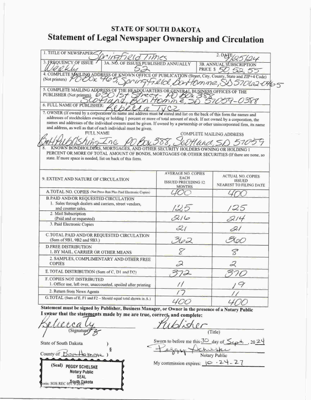 STATE OF SOUTH DAKOTA
Statement of Legal Newspaper Ownership and Circulation
1. TITLE OF NEWSPAPER Springfield Times
2. DATE
3. FREQUENCY OF ISSUE Weekly
3A. NO. OF ISSUES PUBLISHED ANNUALLY 52
3B. ANNUAL SUBSCRIPTION PRICE $
4. COMPLETE MAILING ADDRESS OF KNOWN OFFICE OF PUBLICATION (Street, City, County, State and ZIP+4 Code) (Not printers) PO Box 465, Springfield, Bon Homme, SD 57062-0465
5. COMPLETE MAILING ADDRESS OF THE HEADQUARTERS OF GENERAL BUSINESS OFFICES OF THE PUBLISHER (Not printer)
PO Box 388
Scotland, Bon Homme, SD 57059-0388
6. FULL NAME OF PUBLISHER Rebecca Tycz
7. OWNER (If owned by a corporation its name and address must be stated and
addresses of stockholders owning or holding 1 percent or more of total amount of stock. If not owned by a corporation, the
names and addresses of the individual owners must be given. If owned by a partnership or other unincorporated firm, its name
and address, as well as that of each individual must be given.
FULL NAME
COMPLETE MAILING ADDRESS
B&H Publishing Inc. PO Box 388, Scotland, SD 57059
8. KNOWN BONDHOLDERS, MORTGAGEES, AND OTHER SECURITY HOLDERS OWNING OR HOLDING 1
PERCENT OR MORE OF TOTAL AMOUNT OF BONDS, MORTGAGES OR OTHER SECURITIES (If there are none, so
state. If more space is needed, list on back of this form.
9. EXTENT AND NATURE OF CIRCULATION
AVERAGE NO. COPIES EACH ISSUED PRECEDING 12 MONTHS
ACTUAL NO. COPIES ISSUED NEAREST TO FILING DATE
A. TOTAL NO. COPIES 400 400
B. PAID AND/OR REQUESTED CIRCULATION
1. Sales through dealers and carriers, street vendors, and counter sales 125 125
2. Mail Subscription (Paid and/or requested) 216 214
3. Paid Electronic Copies 21 21
C. TOTAL PAID AND/OR REQUESTED CIRCULATION (Sum of 9B1, 9B2 and 9B3) 362 360
D. FREE DISTRIBUTION
1. BY MAIL, CARRIER OR OTHER MEANS 8 8
2. SAMPLES, COMPLIMENTARY AND OTHER FREE COPIES 2 2
E. TOTAL DISTRIBUTION (Sum of C, D1 and D2) 372 370
F. COPIES NOT DISTRIBUTED
1. Office use, left over, unaccounted, spoiled after printing 11 19
2. Return from News Agents 17 11
G. TOTAL (Sum of E, F1 and F2 - Should equal total shown in A) 400 400
Statement must be signed by Publisher, Business Manager, or Owner in the presence of a Notary Public
I swear that the statements made by me are true, correct, and complete:
Publisher
(Signature)
(Title)
State of South Dakota
Sworn to before me this 30 day of Sept. 2024
County of Bon Homme
Notary Public
(Seal)
My commission expires: 10-24-27
PEGGY SCHELSKE
Notary Public
SEAL
South Dakota